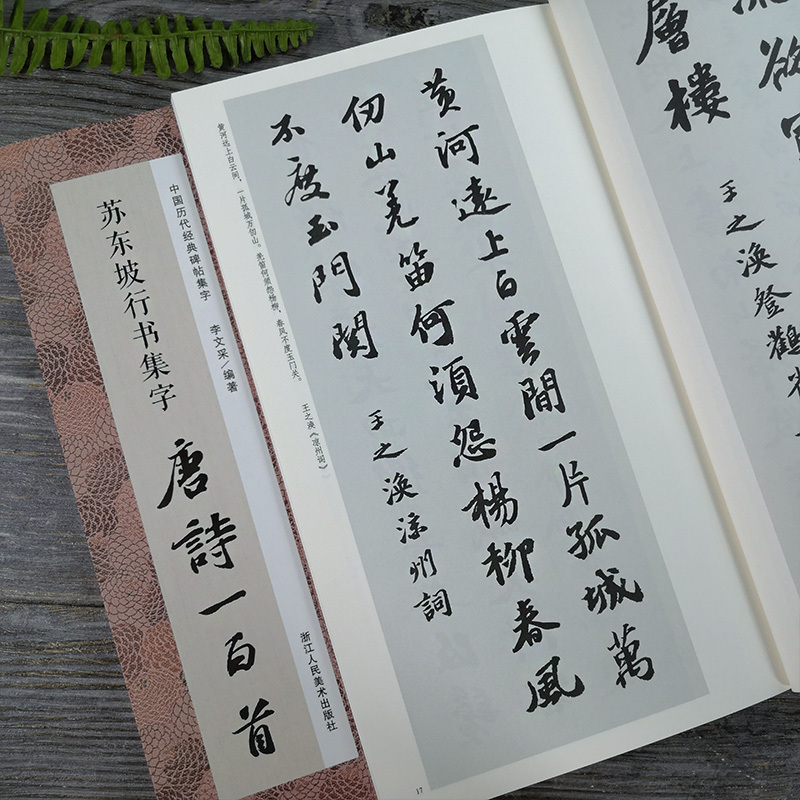 中国历代经典碑帖集字 李文采/编著
苏东坡行书集字
唐詩一百首
浙江人民美术出版社
黄河遠上白雲間一片孤城萬
仞山羌笛何須怨楊柳春風
不度玉門関
王之渙涼州詞
黄河远上白云间，一片孤城万仞山。羌笛何须怨杨柳，春风不度玉门关。 王之涣《凉州词》
17
欲
層樓
王之渙登鸛